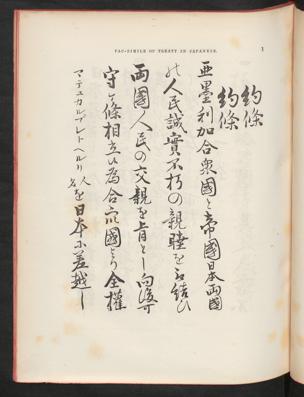 FAC-SIMILE OF TREATY IN JAPANESE.
1
約條
約條
亜墨利加合衆國と帝國日本両國
の人民誠實不朽の親睦を取結ひ
両國人民の交親を旨とし向後可
守ケ條相立ひ為合衆國より全權
マテユカルブレトヘルリ人
名を日本に差越し